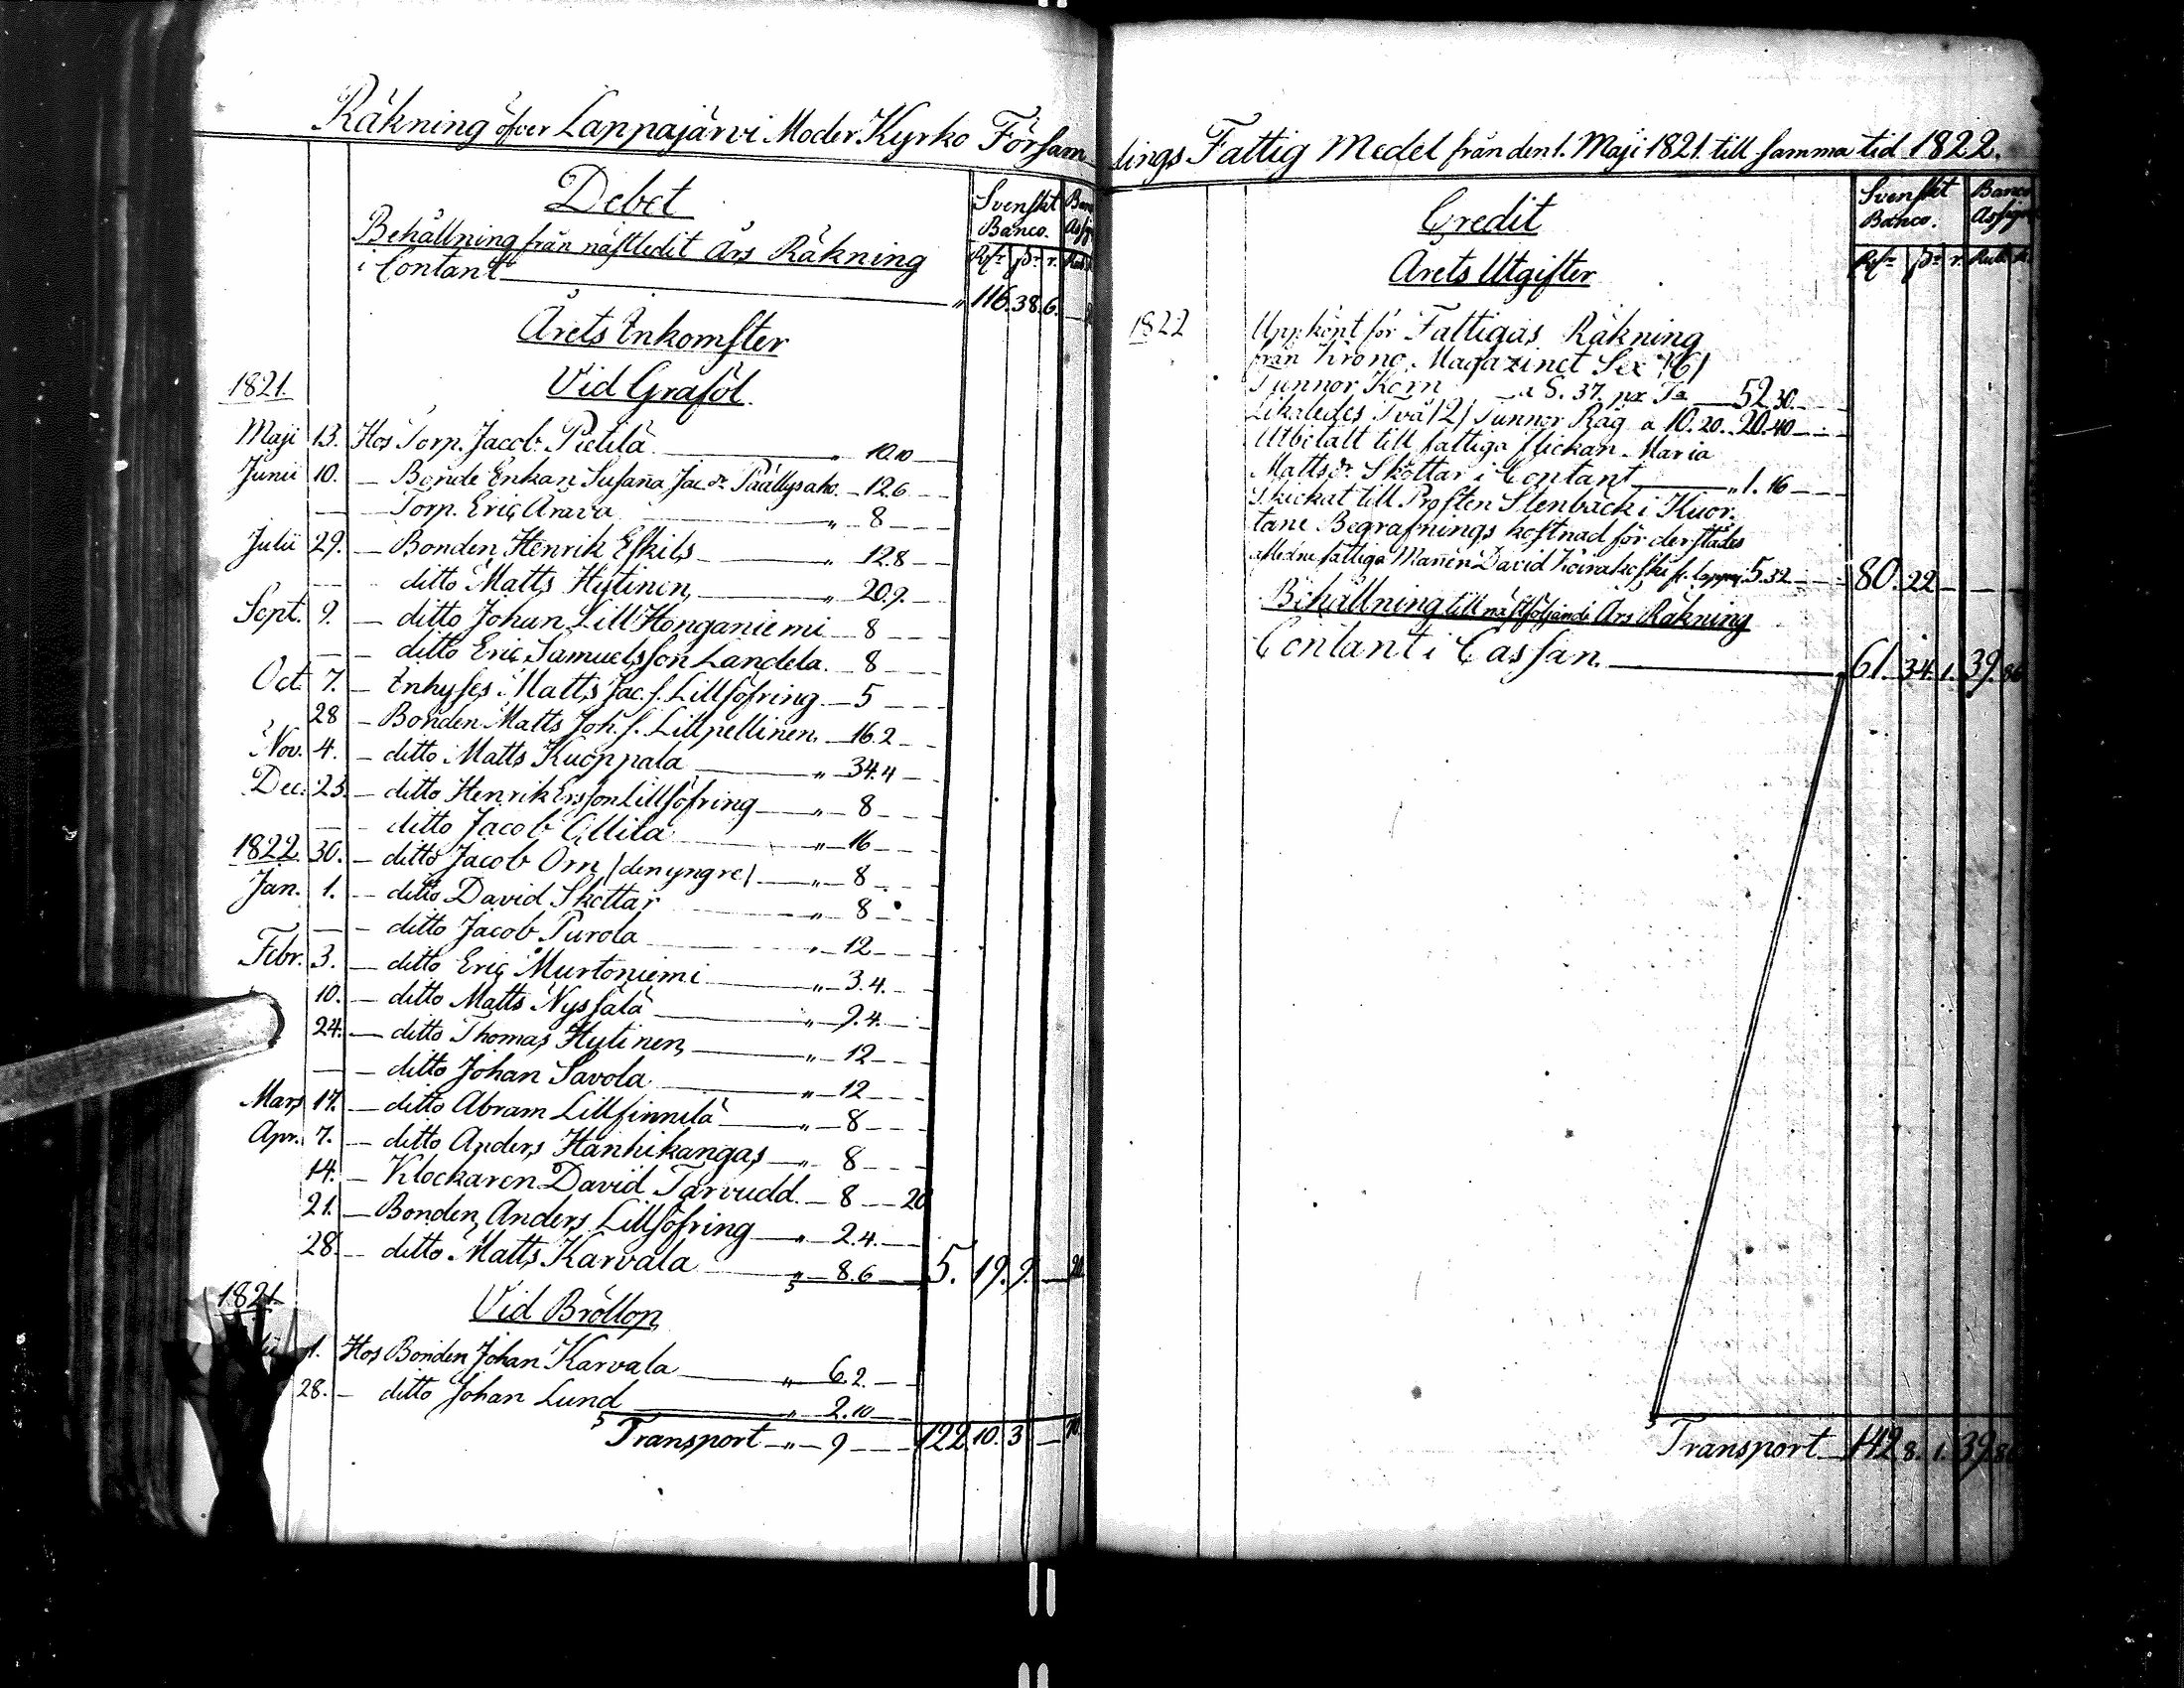 Räkning öfver Lappajärvi Moder Kyrko Församlings Fattig Medel från den 1. Maji 1821. till samma tid 1822.
Debet
Svenskt Banco.
Rdr sk. r.
Behållning från nästledit Års Räkning
i Contant " 116. 38. 6.
Årets Inkomster
1821. Vid Graföl.
Maji 13. Hos Torp. Jacob Pietilä " 10.10
Junii 10. — Bonde Enkan Susaña Jac. dr Päällysaho. 12.6.
— Torp. Eric Arava " 8
Julii 29. — Bonden Henrik Eskils " 12.8
ditto Matts Hytinen " 20.9.
Sept. 9. — ditto Johan Lill Honganiemi 8
— ditto Eric Samuelsson Landela. 8
Oct. 7. — Inhyses Matts Jac. s. Lillsöfring 5
28 — Bonden Matts Joh. s. Lillpellinen 16.2
Nov. 4. — ditto Matts Kuoppala " 34.4
Dec. 23. — ditto Henrik Ersson Lillsöfring " 8
— ditto Jacob Ollila " 16
1822. 30. — ditto Jacob Örn /den yngre/ " 8
Jan. 1. — ditto David Skottar " 8
— ditto Jacob Purola " 12
Febr. 3. — ditto Eric Murtoniemi " 3.4.
10. — ditto Matts Nyssälä " 9.4.
24. — ditto Thomas Hytinen " 12
— ditto Johan Savola " 12
Mars 17. — ditto Abram Lillfinnilä " 8
Apr. 7. — ditto Anders Hanhikangas " 8
14. — Klockaren David Tarvudd. 8 — 20
21. — Bonden Anders Lillsöfring " 2.4.
28. — ditto Matts Karvala " 8.6 5. 19. 9. — 20.
1821. Vid Bröllop
1. Hos Bonden Johan Karvala " 6.2.
28. — ditto Johan Lund " 2.10
Transport " 9 122. 10. 3
Credit
Svenskt Banco.
Rdr sk. r.
Årets Utgifter
1822 Uppköpt för Fattigas Räkning
från Krono Magazinet Sex /6/
Tunnor Korn a 8. 37. pr Ta 52.30.
Likaledes Två /2/ Tunnor Råg a 10.20. 20.40
Utbetalt till fattiga flickan Maria
Matts dr Skottar i Contant " 1.16
Skickat till Prosten Stenbäck i Kuor-
tane Begrafnings kostnad för derstädes
afledne fattiga Mannen David 5.32 80. 22
Behållning till nästföljande Års Räkning
Contant i Cassan. 61. 34. 1. 39. 86
Transport 142. 8. 1. 39. 86